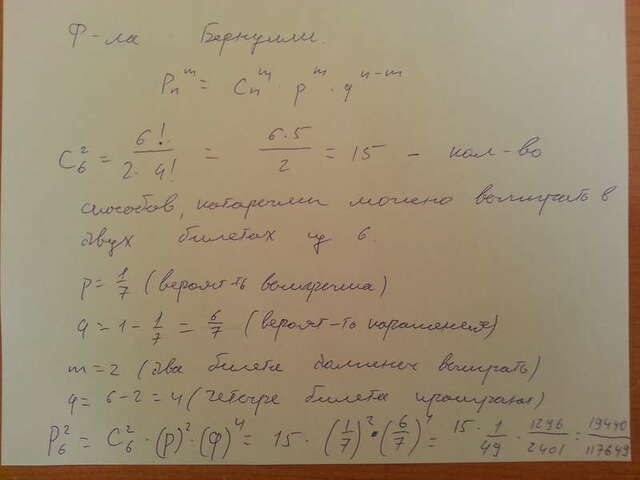 Ф-ла Бернулли.
Pₙᵐ = Cₙᵐ · pᵐ · qⁿ⁻ᵐ
C₆² = 6!/(2·4!) = 6·5/2 = 15 – кол-во
способов, которыми можно выиграть в
двух билетах из 6.
p = 1/7 (вероят-ть выигрыша)
q = 1 - 1/7 = 6/7 (вероят-ть поражения)
m = 2 (два билета должны выиграть)
q = 6-2 = 4 (четыре билета проиграют)
P₆² = C₆² · (p)² · (q)⁴ = 15 · (1/7)² · (6/7)⁴ = 15 · 1/49 · 1296/2401 = 19440/117649